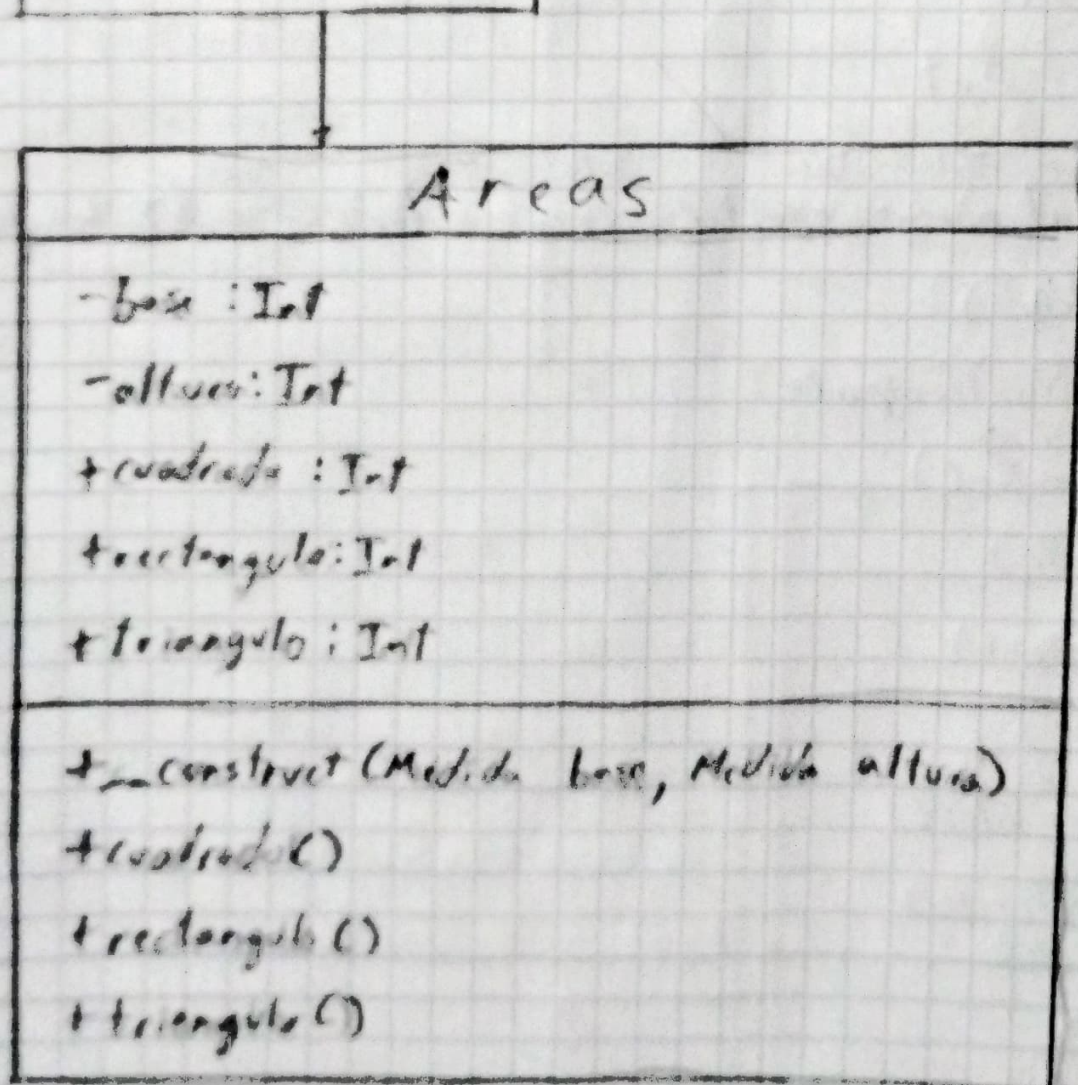 Areas
-base : Int
-altura: Int
+cuadrado : Int
+rectangulo: Int
+triangulo : Int
+__construct (Medida base, Medida altura)
+cuadrado()
+rectangulo()
+triangulo()